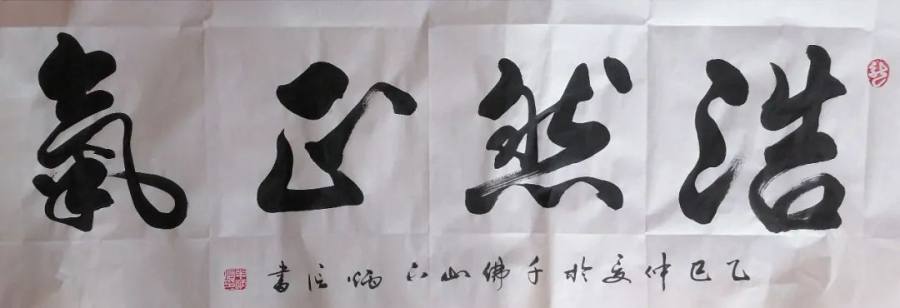 浩然正氣
乙巳仲夏於千佛山下炳信書